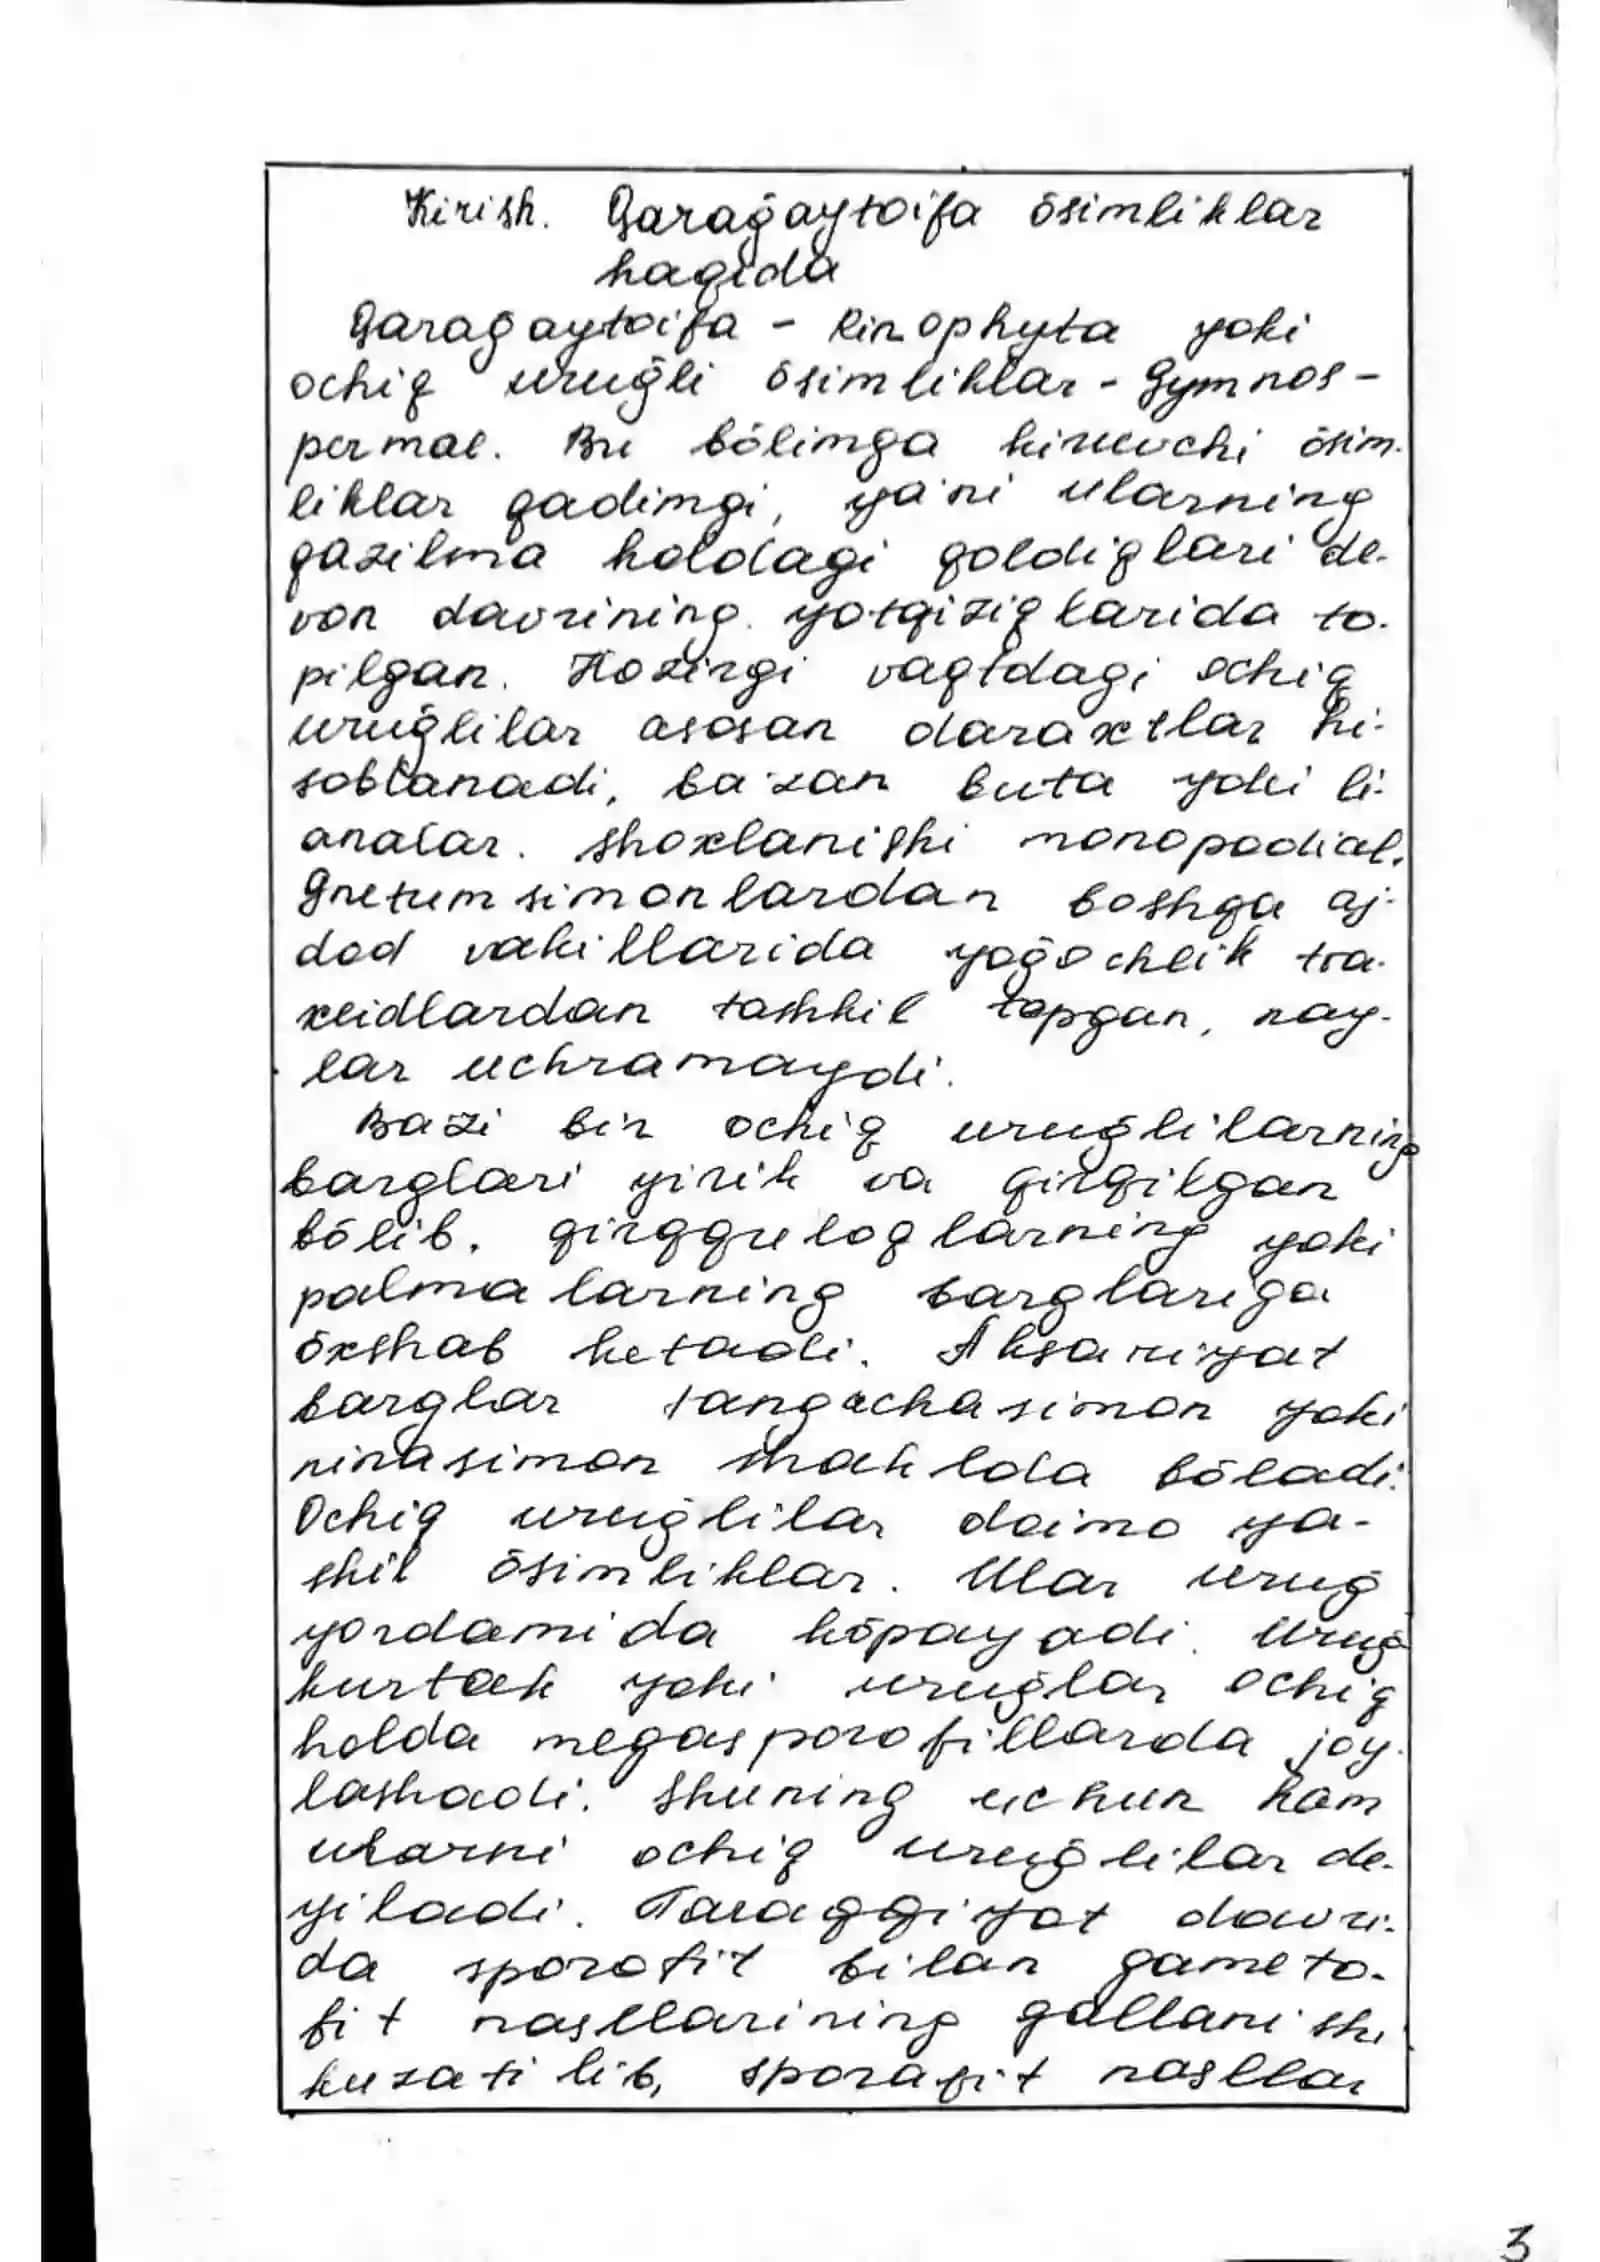 Kirish. Qarağaytoifa õsimliklar
haqida
Qarağaytoifa - Pinophyta yoki
ochiq uruğli õsimliklar - Gymnos-
permae. Bu bõlimga kiruvchi õsim-
liklar qadimgi, ya'ni ularning
qazilma holdagi qoldiqlari de-
von davrining yotqiziqlarida to-
pilgan. Hozirgi vaqtdagi ochiq
uruğlilar asosan daraxtlar hi-
soblanadi, ba'zan buta yoki li-
analar. Shoxlanishi monopodial.
Gnetumsimonlardan boshqa aj-
dod vakillarida yoğochlik tra-
xeidlardan tashkil topgan, nay-
lar uchramaydi.
Bazi bir ochiq uruğlilarning
barglari yirik va qirqilgan
bõlib, qirqquloqlarning yoki
palmalarning barglariga
õxshab ketadi. Aksariyat
barglar tangachasimon yoki
ninasimon shaklda bõladi.
Ochiq uruğlilar doimo ya-
shil õsimliklar. Ular uruğ
yordamida kõpayadi. Uruğ
kurtak yoki uruğlar ochiq
holda megasporofillarda joy-
lashadi. Shuning uchun ham
ularni ochiq uruğlilar de-
yiladi. Taraqqiyot davri-
da sporofit bilan gameto-
fit nasllarining gallanishi
kuzatilib, sporafit nasllar
3